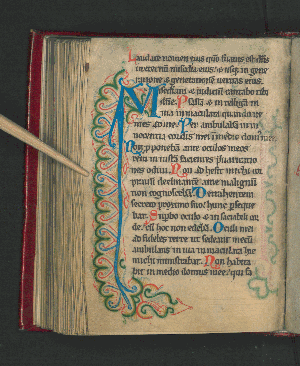 Laudate nomen eius qm suauis est dns
in eternum misericordia eius: & usq; in gene
ratione & generatione ueritas eius.
Misericordiam & iudicium cantabo tibi
dne. Psallam & intelligam in
uia inmaculata quando ue
nies ad me. Perambulabam in in
nocentia cordis mei in medio domus mee
Non proponebam ante oculos meos
rem iniustam facientes preuaricatio
nes odiui. Non adhesit michi cor
prauum declinantem a me malignum
non cognoscebam. Detrahentem
secreto proximo suo hunc perseque
bar. Superbo oculo & insaciabili cor
de cum hoc non edebam. Oculi mei
ad fideles terre ut sedeant mecum
ambulans in uia inmaculata hic
michi ministrabat. Non habita
bit in medio domus mee qui fa